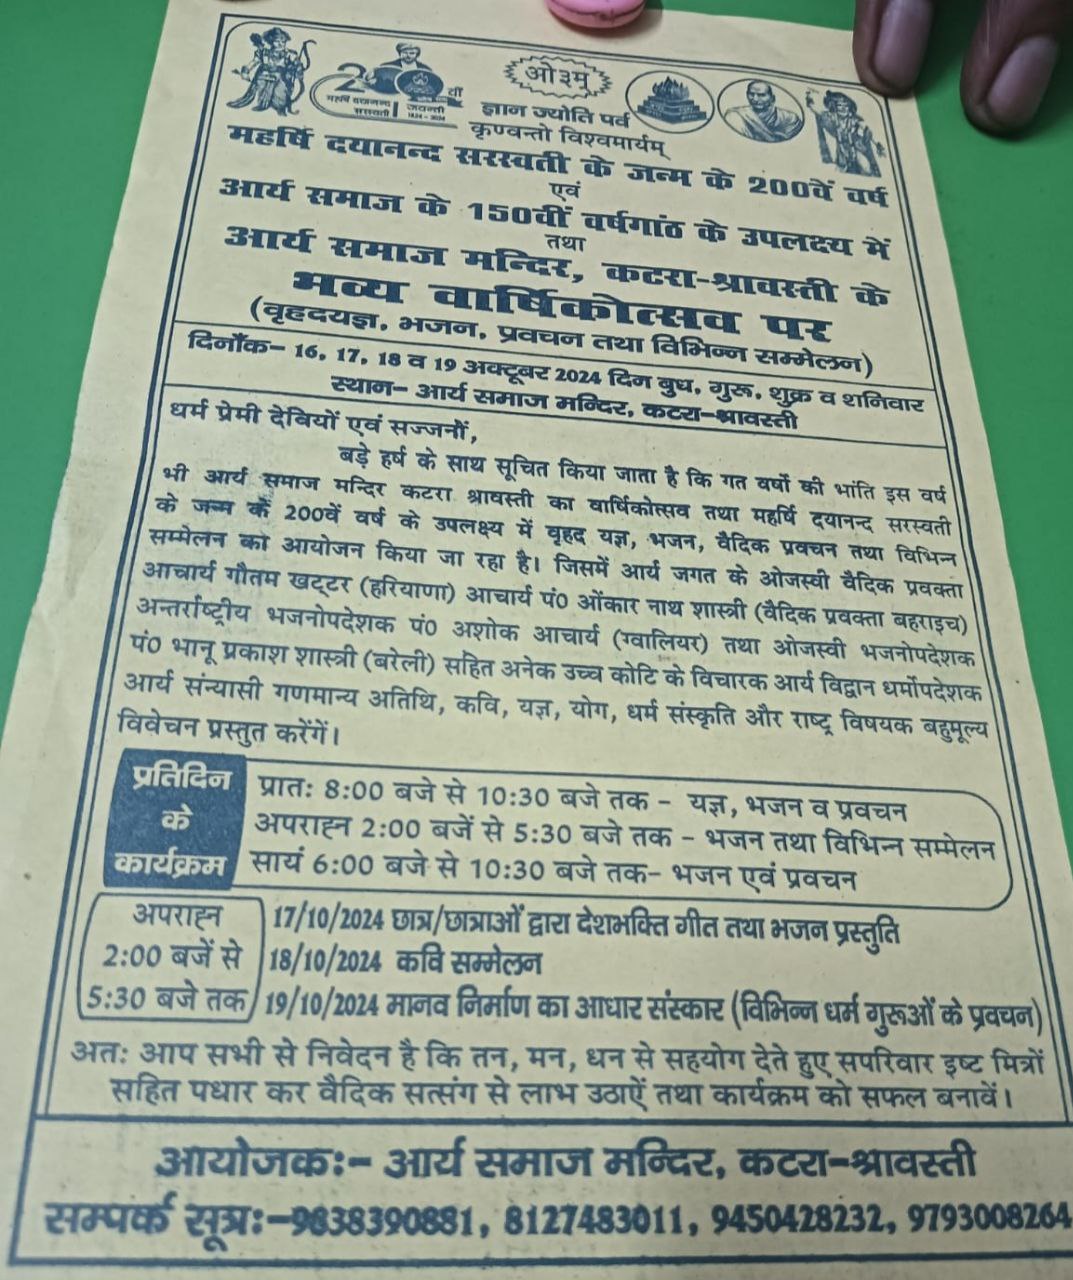 ओ३म्
200 वीं
महर्षि दयानन्द
सरस्वती
जयन्ती
1824 - 2024
ज्ञान ज्योति पर्व
कृण्वन्तो विश्वमार्यम्
महर्षि दयानन्द सरस्वती के जन्म के 200वें वर्ष
एवं
आर्य समाज के 150वीं वर्षगांठ के उपलक्ष्य में
तथा
आर्य समाज मन्दिर, कटरा-श्रावस्ती के
भव्य वार्षिकोत्सव पर
(वृहदयज्ञ, भजन, प्रवचन तथा विभिन्न सम्मेलन)
दिनाँक- 16, 17, 18 व 19 अक्टूबर 2024 दिन बुध, गुरू, शुक्र व शनिवार
स्थान- आर्य समाज मन्दिर, कटरा-श्रावस्ती
धर्म प्रेमी देवियों एवं सज्जनों,
बड़े हर्ष के साथ सूचित किया जाता है कि गत वर्षो की भांति इस वर्ष
भी आर्य समाज मन्दिर कटरा श्रावस्ती का वार्षिकोत्सव तथा महर्षि दयानन्द सरस्वती
के जन्म के 200वें वर्ष के उपलक्ष्य में वृहद यज्ञ, भजन, वैदिक प्रवचन तथा विभिन्न
सम्मेलन का आयोजन किया जा रहा है। जिसमें आर्य जगत के ओजस्वी वैदिक प्रवक्ता
आचार्य गौतम खट्टर (हरियाणा) आचार्य पं0 ओंकार नाथ शास्त्री (वैदिक प्रवक्ता बहराइच)
अन्तर्राष्ट्रीय भजनोपदेशक पं0 अशोक आचार्य (ग्वालियर) तथा ओजस्वी भजनोपदेशक
पं0 भानू प्रकाश शास्त्री (बरेली) सहित अनेक उच्च कोटि के विचारक आर्य विद्वान धर्मोपदेशक
आर्य संन्यासी गणमान्य अतिथि, कवि, यज्ञ, योग, धर्म संस्कृति और राष्ट्र विषयक बहुमूल्य
विवेचन प्रस्तुत करेंगें।
प्रतिदिन
के
कार्यक्रम
प्रातः 8:00 बजे से 10:30 बजे तक - यज्ञ, भजन व प्रवचन
अपराह्न 2:00 बजें से 5:30 बजे तक - भजन तथा विभिन्न सम्मेलन
सायं 6:00 बजे से 10:30 बजे तक- भजन एवं प्रवचन
अपराह्न
2:00 बजें से
5:30 बजे तक
17/10/2024 छात्र/छात्राओं द्वारा देशभक्ति गीत तथा भजन प्रस्तुति
18/10/2024 कवि सम्मेलन
19/10/2024 मानव निर्माण का आधार संस्कार (विभिन्न धर्म गुरूओं के प्रवचन)
अतः आप सभी से निवेदन है कि तन, मन, धन से सहयोग देते हुए सपरिवार इष्ट मित्रों
सहित पधार कर वैदिक सत्संग से लाभ उठाऐं तथा कार्यक्रम को सफल बनावें।
आयोजकः- आर्य समाज मन्दिर, कटरा-श्रावस्ती
सम्पर्क सूत्रः-9838390881, 8127483011, 9450428232, 9793008264